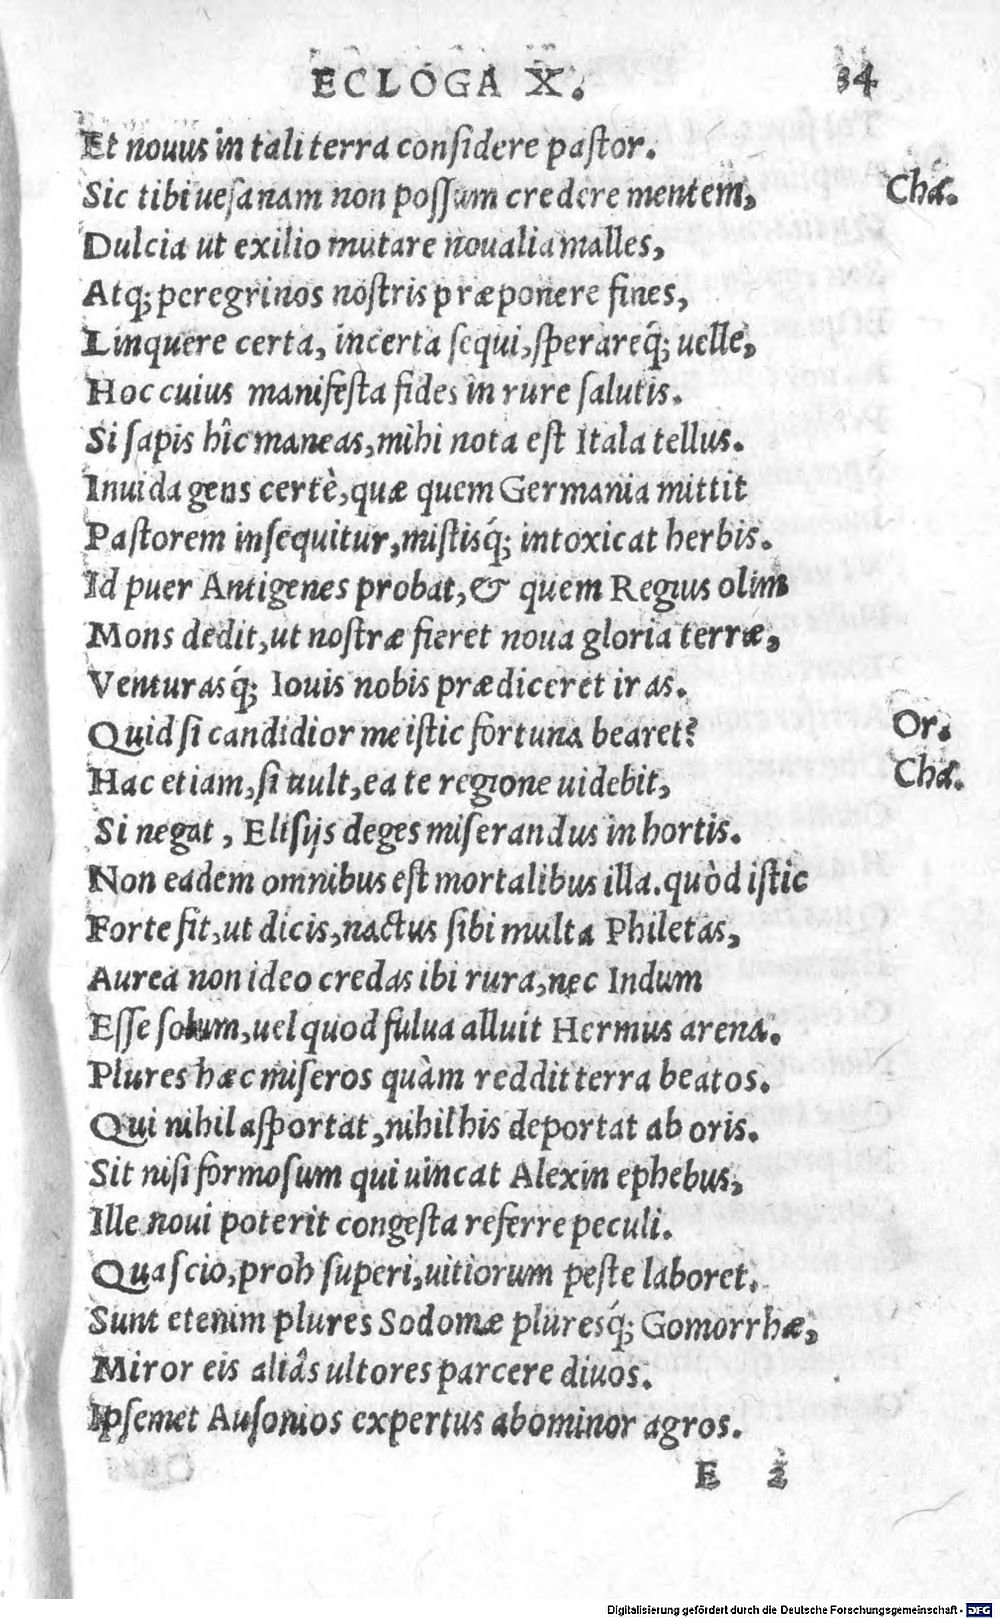 ECLOGA X. 34
Et nouus in tali terra considere pastor.
Sic tibi uesanam non possum credere mentem, Cha.
Dulcia ut exilio mutare noualia malles,
Atq; peregrinos nostris præponere fines,
Linquere certa, incerta sequi, sperareq́; uelle,
Hoc cuius manifesta fides in rure salutis.
Si sapis hîc maneas, mihi nota est Itala tellus.
Inuida gens certè, quæ quem Germania mittit
Pastorem insequitur, mistisq́; intoxicat herbis.
Id puer Antigenes probat, & quem Regius olim
Mons dedit, ut nostræ fieret noua gloria terræ,
Venturasq́; Iouis nobis prædiceret iras.
Quid si candidior me istic fortuna bearet? Or.
Hac etiam, si uult, ea te regione uidebit, Cha.
Si negat, Elisijs deges miserandus in hortis.
Non eadem omnibus est mortalibus illa. quòd istic
Forte sit, ut dicis, nactus sibi multa Philetas,
Aurea non ideo credas ibi rura, nec Indum
Esse solum, uel quod fulua alluit Hermus arena.
Plures hæc miseros quàm reddit terra beatos.
Qui nihil asportat, nihil his deportat ab oris.
Sit nisi formosum qui uincat Alexin ephebus,
Ille noui poterit congesta referre peculi.
Qua scio, proh superi, uitiorum peste laboret.
Sunt etenim plures Sodomæ pluresq́; Gomorrhæ,
Miror eis aliâs ultores parcere diuos.
Ipsemet Ausonios expertus abominor agros.
E 2
Digitalisierung gefördert durch die Deutsche Forschungsgemeinschaft - DFG